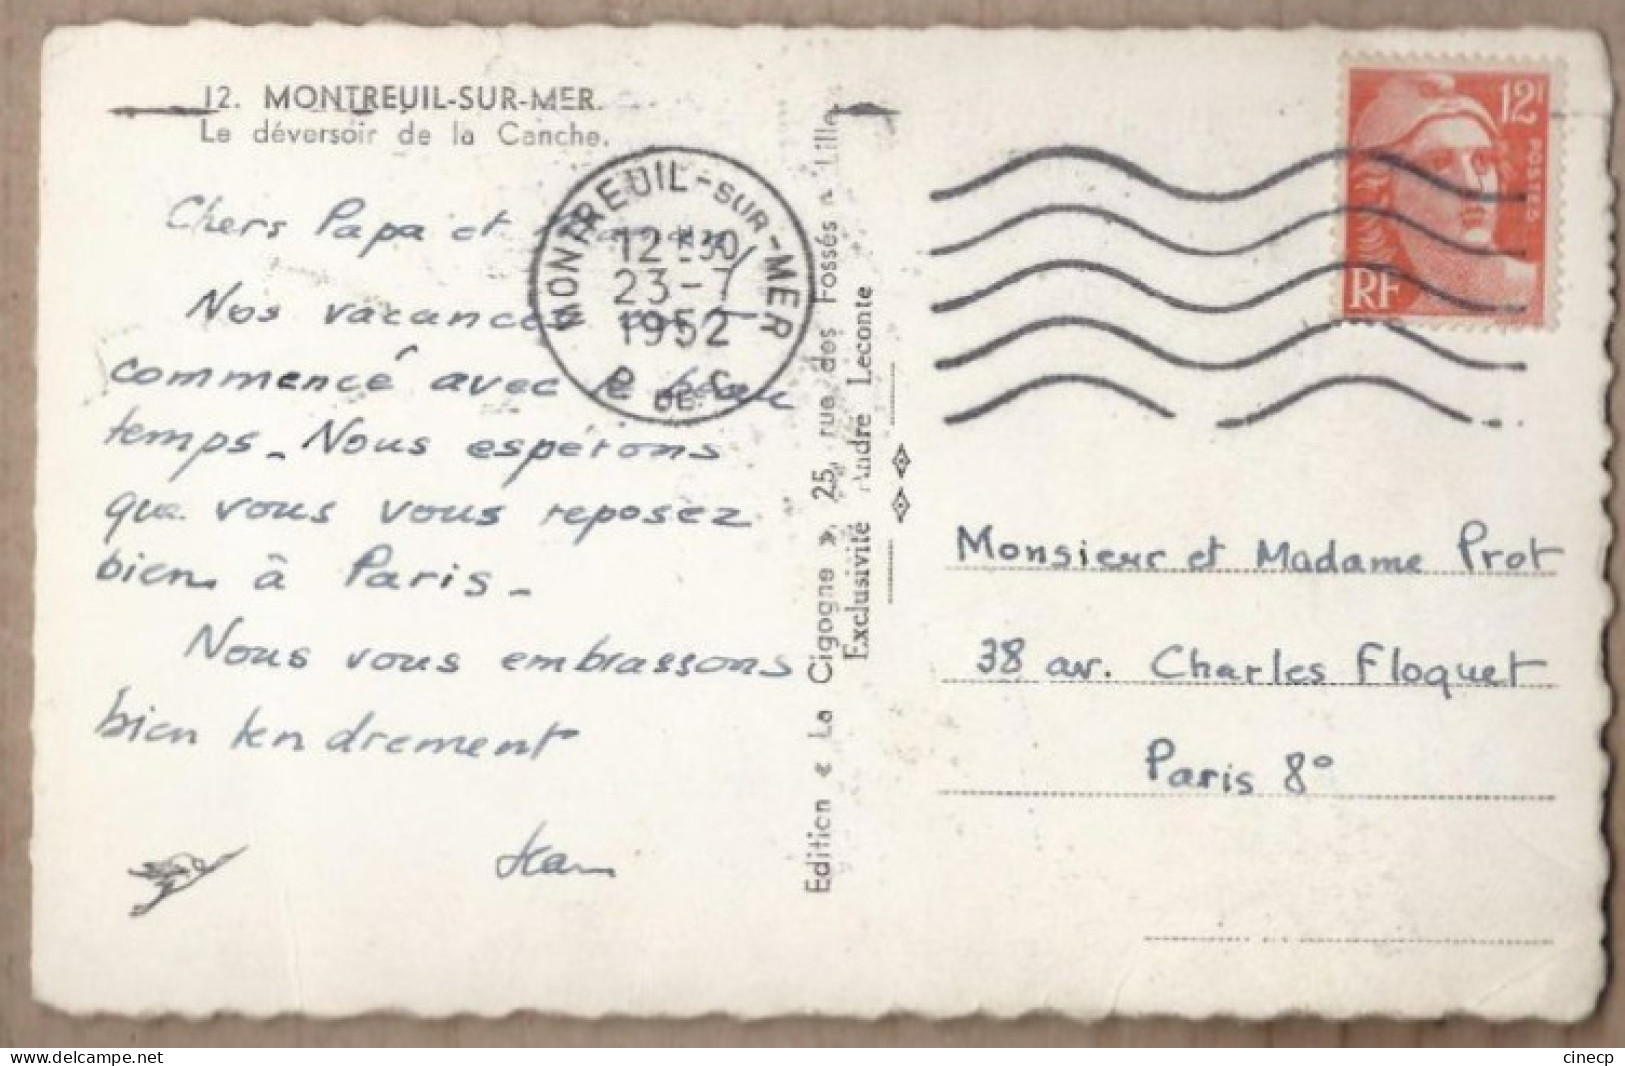 12. MONTREUIL-SUR-MER.
Le déversoir de la Canche.
Chers Papa et
Nos vacances ont
commencé avec le beau
temps - Nous espérons
que vous vous reposez
bien à Paris -
Nous vous embrassons
bien tendrement
Jean
MONTREUIL-SUR-MER
12 H 30
23-7
1952
P. DE C.
Edition « La Cigogne » 25, rue des Fossés - Lille
Exclusivité André Leconte
12F
POSTES
RF
Monsieur et Madame Prot
38 av. Charles Floquet
Paris 8°
www.delcampe.net
cinecp